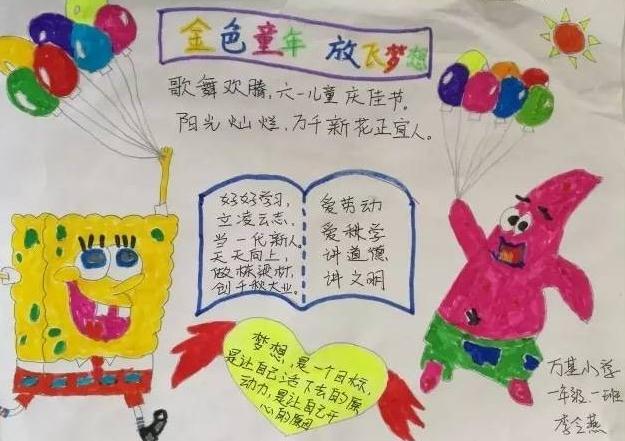 金色童年 放飞梦想
歌舞欢腾,六一儿童庆佳节。
阳光灿烂,万千新花正宜人。
好好学习,
立凌云志,
当一代新人。
天天向上,
做栋梁材,
创千秋大业。
爱劳动
爱科学
讲道德
讲文明
梦想,是一个目标,
是让自己活下去的原
动力,是让自己开
心的原因
万基小学
一年级一班
李会燕